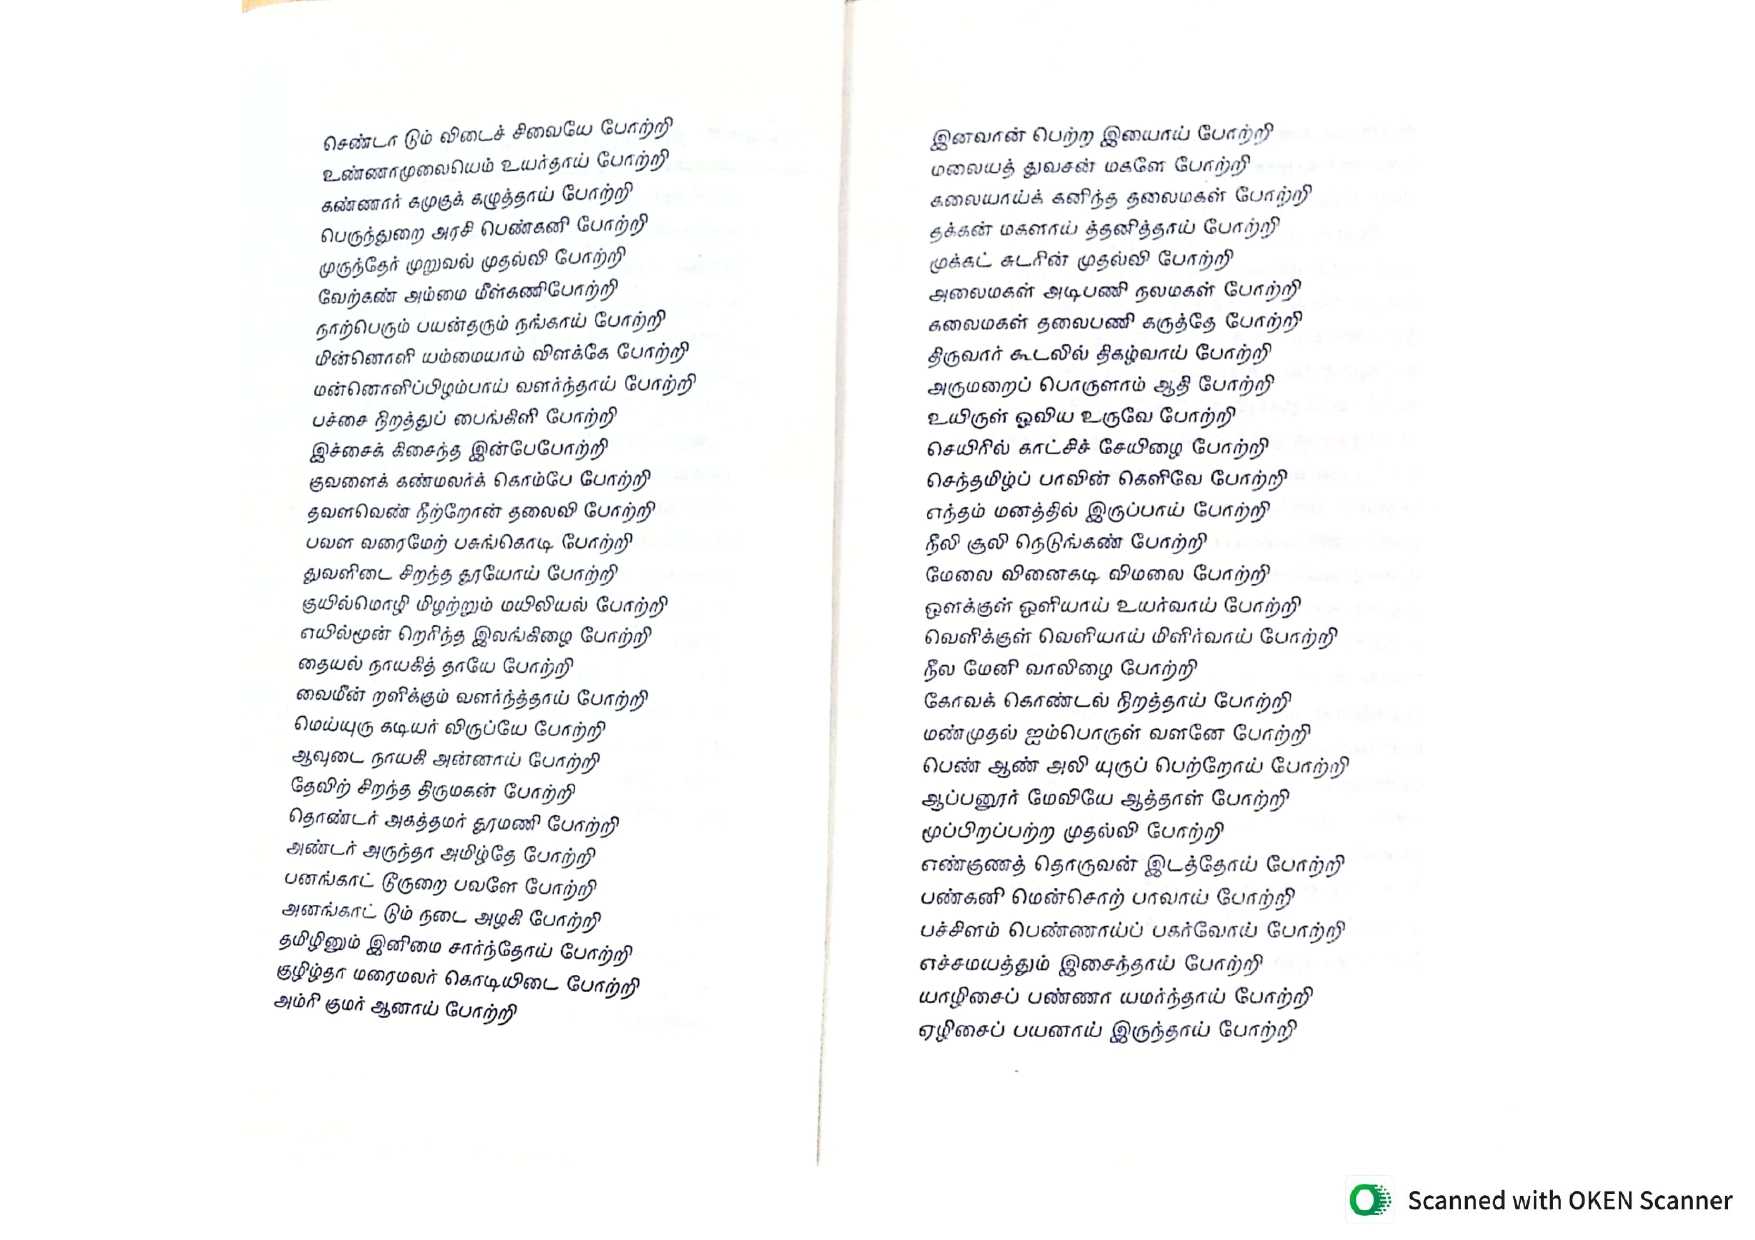 செண்டா டும் விடைச் சிவையே போற்றி
உண்ணாமுலையெம் உயர்தாய் போற்றி
கண்ணார் கமுகுக் கழுத்தாய் போற்றி
பெருந்துறை அரசி பெண்கனி போற்றி
முருந்தேர் முறுவல் முதல்வி போற்றி
வேற்கண் அம்மை மீள்கணிபோற்றி
நாற்பெரும் பயன்தரும் நங்காய் போற்றி
மின்னொளி யம்மையாம் விளக்கே போற்றி
மன்னொளிப்பிழம்பாய் வளர்ந்தாய் போற்றி
பச்சை நிறத்துப் பைங்கிளி போற்றி
இச்சைக் கிசைந்த இன்பேபோற்றி
குவளைக் கண்மலர்க் கொம்பே போற்றி
தவளவெண் நீற்றோன் தலைவி போற்றி
பவள வரைமேற் பசுங்கொடி போற்றி
துவளிடை சிறந்த தூயோய் போற்றி
குயில்மொழி மிழற்றும் மயிலியல் போற்றி
எயில்மூன் றெரிந்த இலங்கிழை போற்றி
தையல் நாயகித் தாயே போற்றி
வைமீன் றளிக்கும் வளர்ந்த்தாய் போற்றி
மெய்யுரு கடியர் விருப்யே போற்றி
ஆவுடை நாயகி அன்னாய் போற்றி
தேவிற் சிறந்த திருமகன் போற்றி
தொண்டர் அகத்தமர் தூமணி போற்றி
அண்டர் அருந்தா அமிழ்தே போற்றி
பனங்காட் டூருறை பவளே போற்றி
அனங்காட் டும் நடை அழகி போற்றி
தமிழினும் இனிமை சார்ந்தோய் போற்றி
குழிழ்தா மரைமலர் கொடியிடை போற்றி
அம்ரி குமர் ஆனாய் போற்றி
இனவான் பெற்ற இயைாய் போற்றி
மலையத் துவசன் மகளே போற்றி
கலையாய்க் கனிந்த தலைமகள் போற்றி
தக்கன் மகளாய் த்தனித்தாய் போற்றி
முக்கட் சுடரின் முதல்வி போற்றி
அலைமகள் அடிபணி நலமகள் போற்றி
கலைமகள் தலைபணி கருத்தே போற்றி
திருவார் கூடலில் திகழ்வாய் போற்றி
அருமறைப் பொருளாம் ஆதி போற்றி
உயிருள் ஓவிய உருவே போற்றி
செயிரில் காட்சிச் சேயிழை போற்றி
செந்தமிழ்ப் பாவின் கெளிவே போற்றி
எந்தம் மனத்தில் இருப்பாய் போற்றி
நீலி சூலி நெடுங்கண் போற்றி
மேலை வினைகடி விமலை போற்றி
ஒளக்குள் ஒளியாய் உயர்வாய் போற்றி
வெளிக்குள் வெளியாய் மிளிர்வாய் போற்றி
நீல மேனி வாலிழை போற்றி
கோவக் கொண்டல் நிறத்தாய் போற்றி
மண்முதல் ஐம்பொருள் வளனே போற்றி
பெண் ஆண் அலி யுருப் பெற்றோய் போற்றி
ஆப்பனூர் மேவியே ஆத்தாள் போற்றி
மூப்பிறப்பற்ற முதல்வி போற்றி
எண்குணத் தொருவன் இடத்தோய் போற்றி
பண்கனி மென்சொற் பாவாய் போற்றி
பச்சிளம் பெண்ணாய்ப் பகர்வோய் போற்றி
எச்சமயத்தும் இசைந்தாய் போற்றி
யாழிசைப் பண்ணா யமர்ந்தாய் போற்றி
ஏழிசைப் பயனாய் இருந்தாய் போற்றி
Scanned with OKEN Scanner